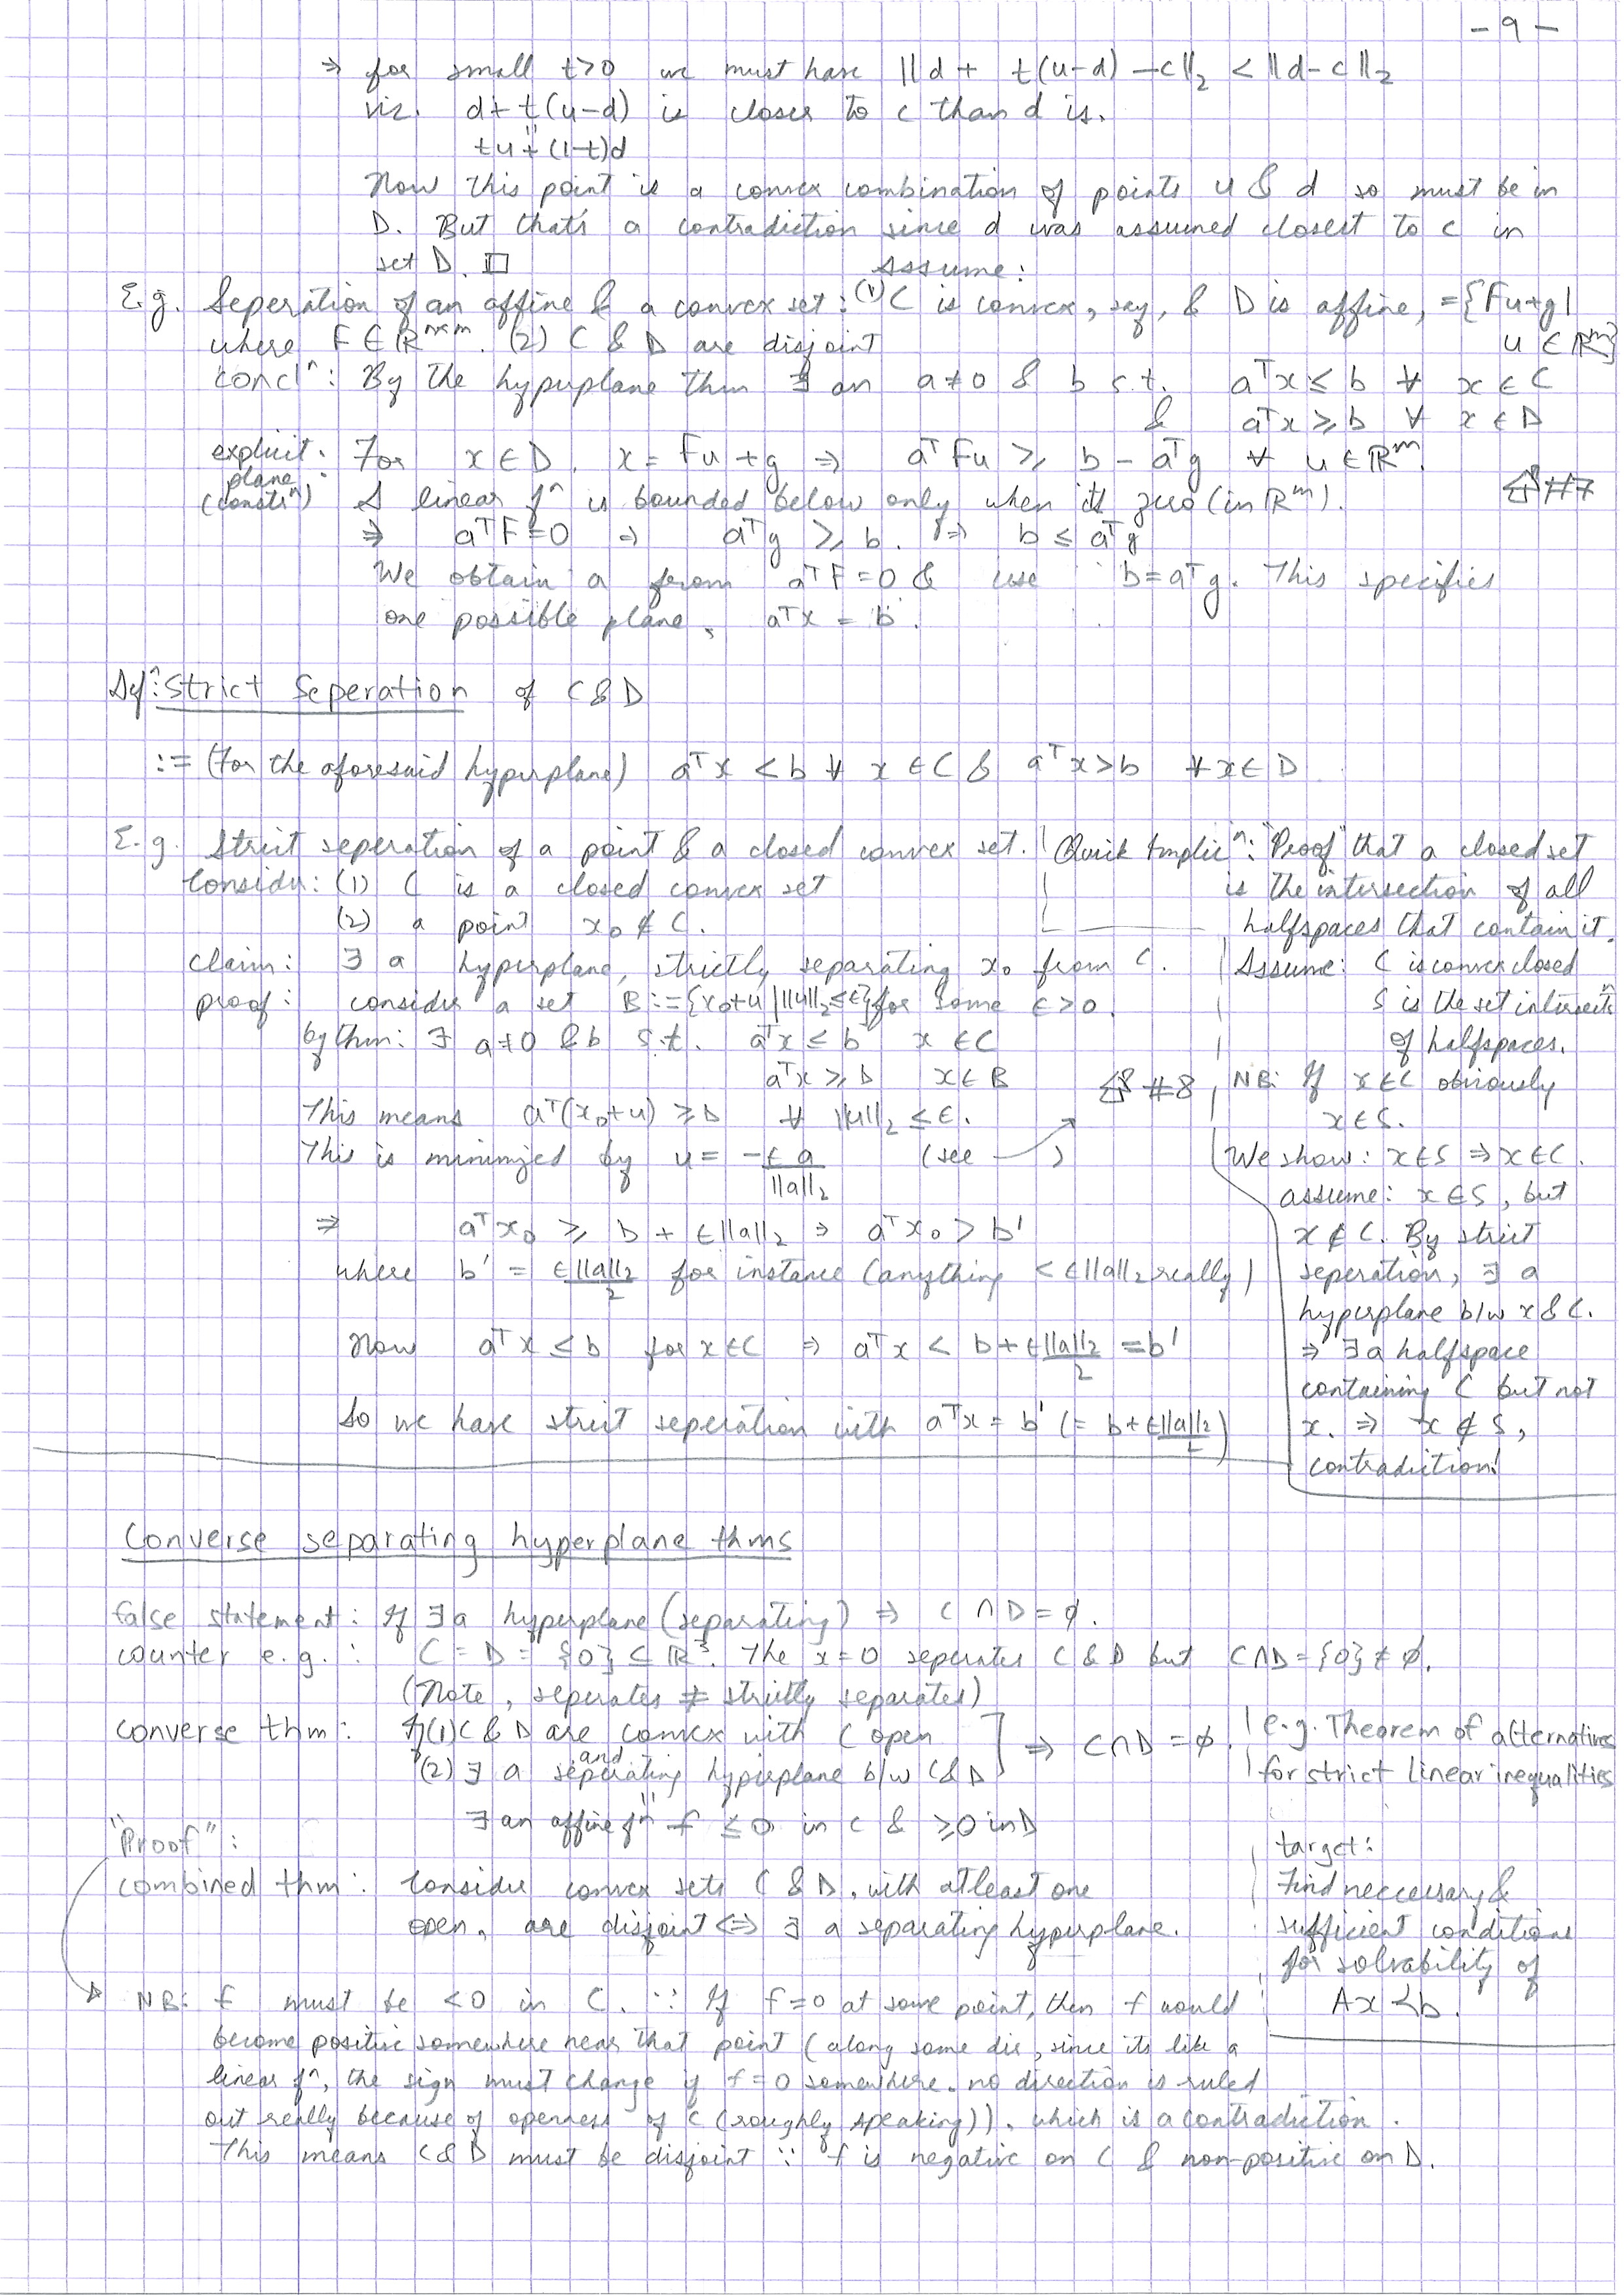 - 9 -
⇒ for small t>0 we must have ||d + t(u-d) - c||₂ < ||d-c||₂
viz. d+t(u-d) is closer to c than d is.
"
tu + (1-t)d
Now this point is a convex combination of points u & d so must be in
D. But that's a contradiction since d was assumed closest to c in
set D. □
E.g. Seperation of an affine & a convex set: Assume: (1) C is convex, say, & D is affine, = {Fu+g |
where F ∈ ℝⁿˣᵐ. (2) C & D are disjoint u ∈ ℝᵐ}
Conclⁿ: By the hyperplane thm ∃ an a≠0 & b s.t. aᵀx ≤ b ∀ x ∈ C
& aᵀx ≥ b ∀ x ∈ D
explicit. For x∈D, x = Fu+g ⇒ aᵀFu ≥ b - aᵀg ∀ u∈ℝᵐ.
plane
(constrⁿ) A linear fⁿ is bounded below only when it's zero (in ℝᵐ). ⇧ #7
⇒ aᵀF=0 ⇒ aᵀg ≥ b. ⇒ b ≤ aᵀg
We obtain a from aᵀF=0 & use b=aᵀg. This specifies
one possible plane, aᵀx = b.
Defⁿ: Strict Seperation of C & D
:= (for the aforesaid hyperplane) aᵀx < b ∀ x ∈ C & aᵀx > b ∀ x ∈ D
E.g. Strict seperation of a point & a closed convex set.
Consider: (1) C is a closed convex set
(2) a point x₀ ∉ C.
claim: ∃ a hyperplane, strictly separating x₀ from C.
proof: consider a set B := {x₀+u | ||u||₂ ≤ ε} for some ε>0.
by thm: ∃ a≠0 & b s.t. aᵀx ≤ b x ∈ C
aᵀx ≥ b x ∈ B
⇧8 #8
This means aᵀ(x₀+u) ≥ b ∀ ||u||₂ ≤ ε.
This is minimized by u = -εa/||a||₂ (see ↗)
⇒ aᵀx₀ ≥ b + ε||a||₂ ⇒ aᵀx₀ > b'
where b' = ε||a||₂/2 for instance (anything < ε||a||₂ really)
Now aᵀx ≤ b for x∈C ⇒ aᵀx < b + ε||a||₂/2 = b'
So we have strict seperation with aᵀx = b' (= b + ε||a||₂/2)
Quick Implicⁿ: "Proof" that a closed set
is the intersection of all
halfspaces that contain it.
Assume: C is convex closed
S is the set intersectⁿ
of halfspaces.
NB: If x∈C obviously
x∈S.
We show: x∈S ⇒ x∈C.
assume: x∈S, but
x∉C. By strict
seperation, ∃ a
hyperplane b/w x & C.
⇒ ∃ a halfspace
containing C but not
x. ⇒ x ∉ S,
contradiction!
Converse separating hyperplane thms
false statement: If ∃ a hyperplane (separating) ⇒ C ∩ D = ϕ.
counter e.g.: C = D = {0} ⊆ ℝ³. The x=0 seperates C & D but C∩D = {0} ≠ ϕ.
(Note, seperates ≠ strictly separates)
converse thm: If (1) C & D are convex with C open
and
(2) ∃ a separating hyperplane b/w C & D ] ⇒ C∩D = ϕ.
"
∃ an affine fⁿ f ≤ 0 in C & ≥ 0 in D
"Proof":
combined thm: Consider convex sets C & D, with atleast one
open, are disjoint ⇔ ∃ a separating hyperplane.
e.g. Theorem of alternatives
for strict linear inequalities
target:
Find neccessary &
sufficient conditions
for solvability of
Ax < b.
NB: f must be <0 in C. ∵ If f=0 at some point, then f would
become positive somewhere near that point (along some dir, since its like a
linear fⁿ, the sign must change if f=0 somewhere. no direction is ruled
out really because of openness of C (roughly speaking)). which is a contradiction.
This means C & D must be disjoint ∵ f is negative on C & non-positive on D.